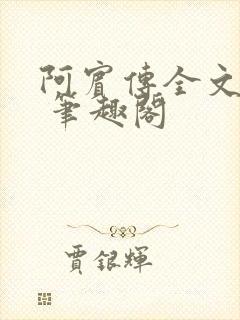 阿賓傳全文
筆趣閣
賈銀輝